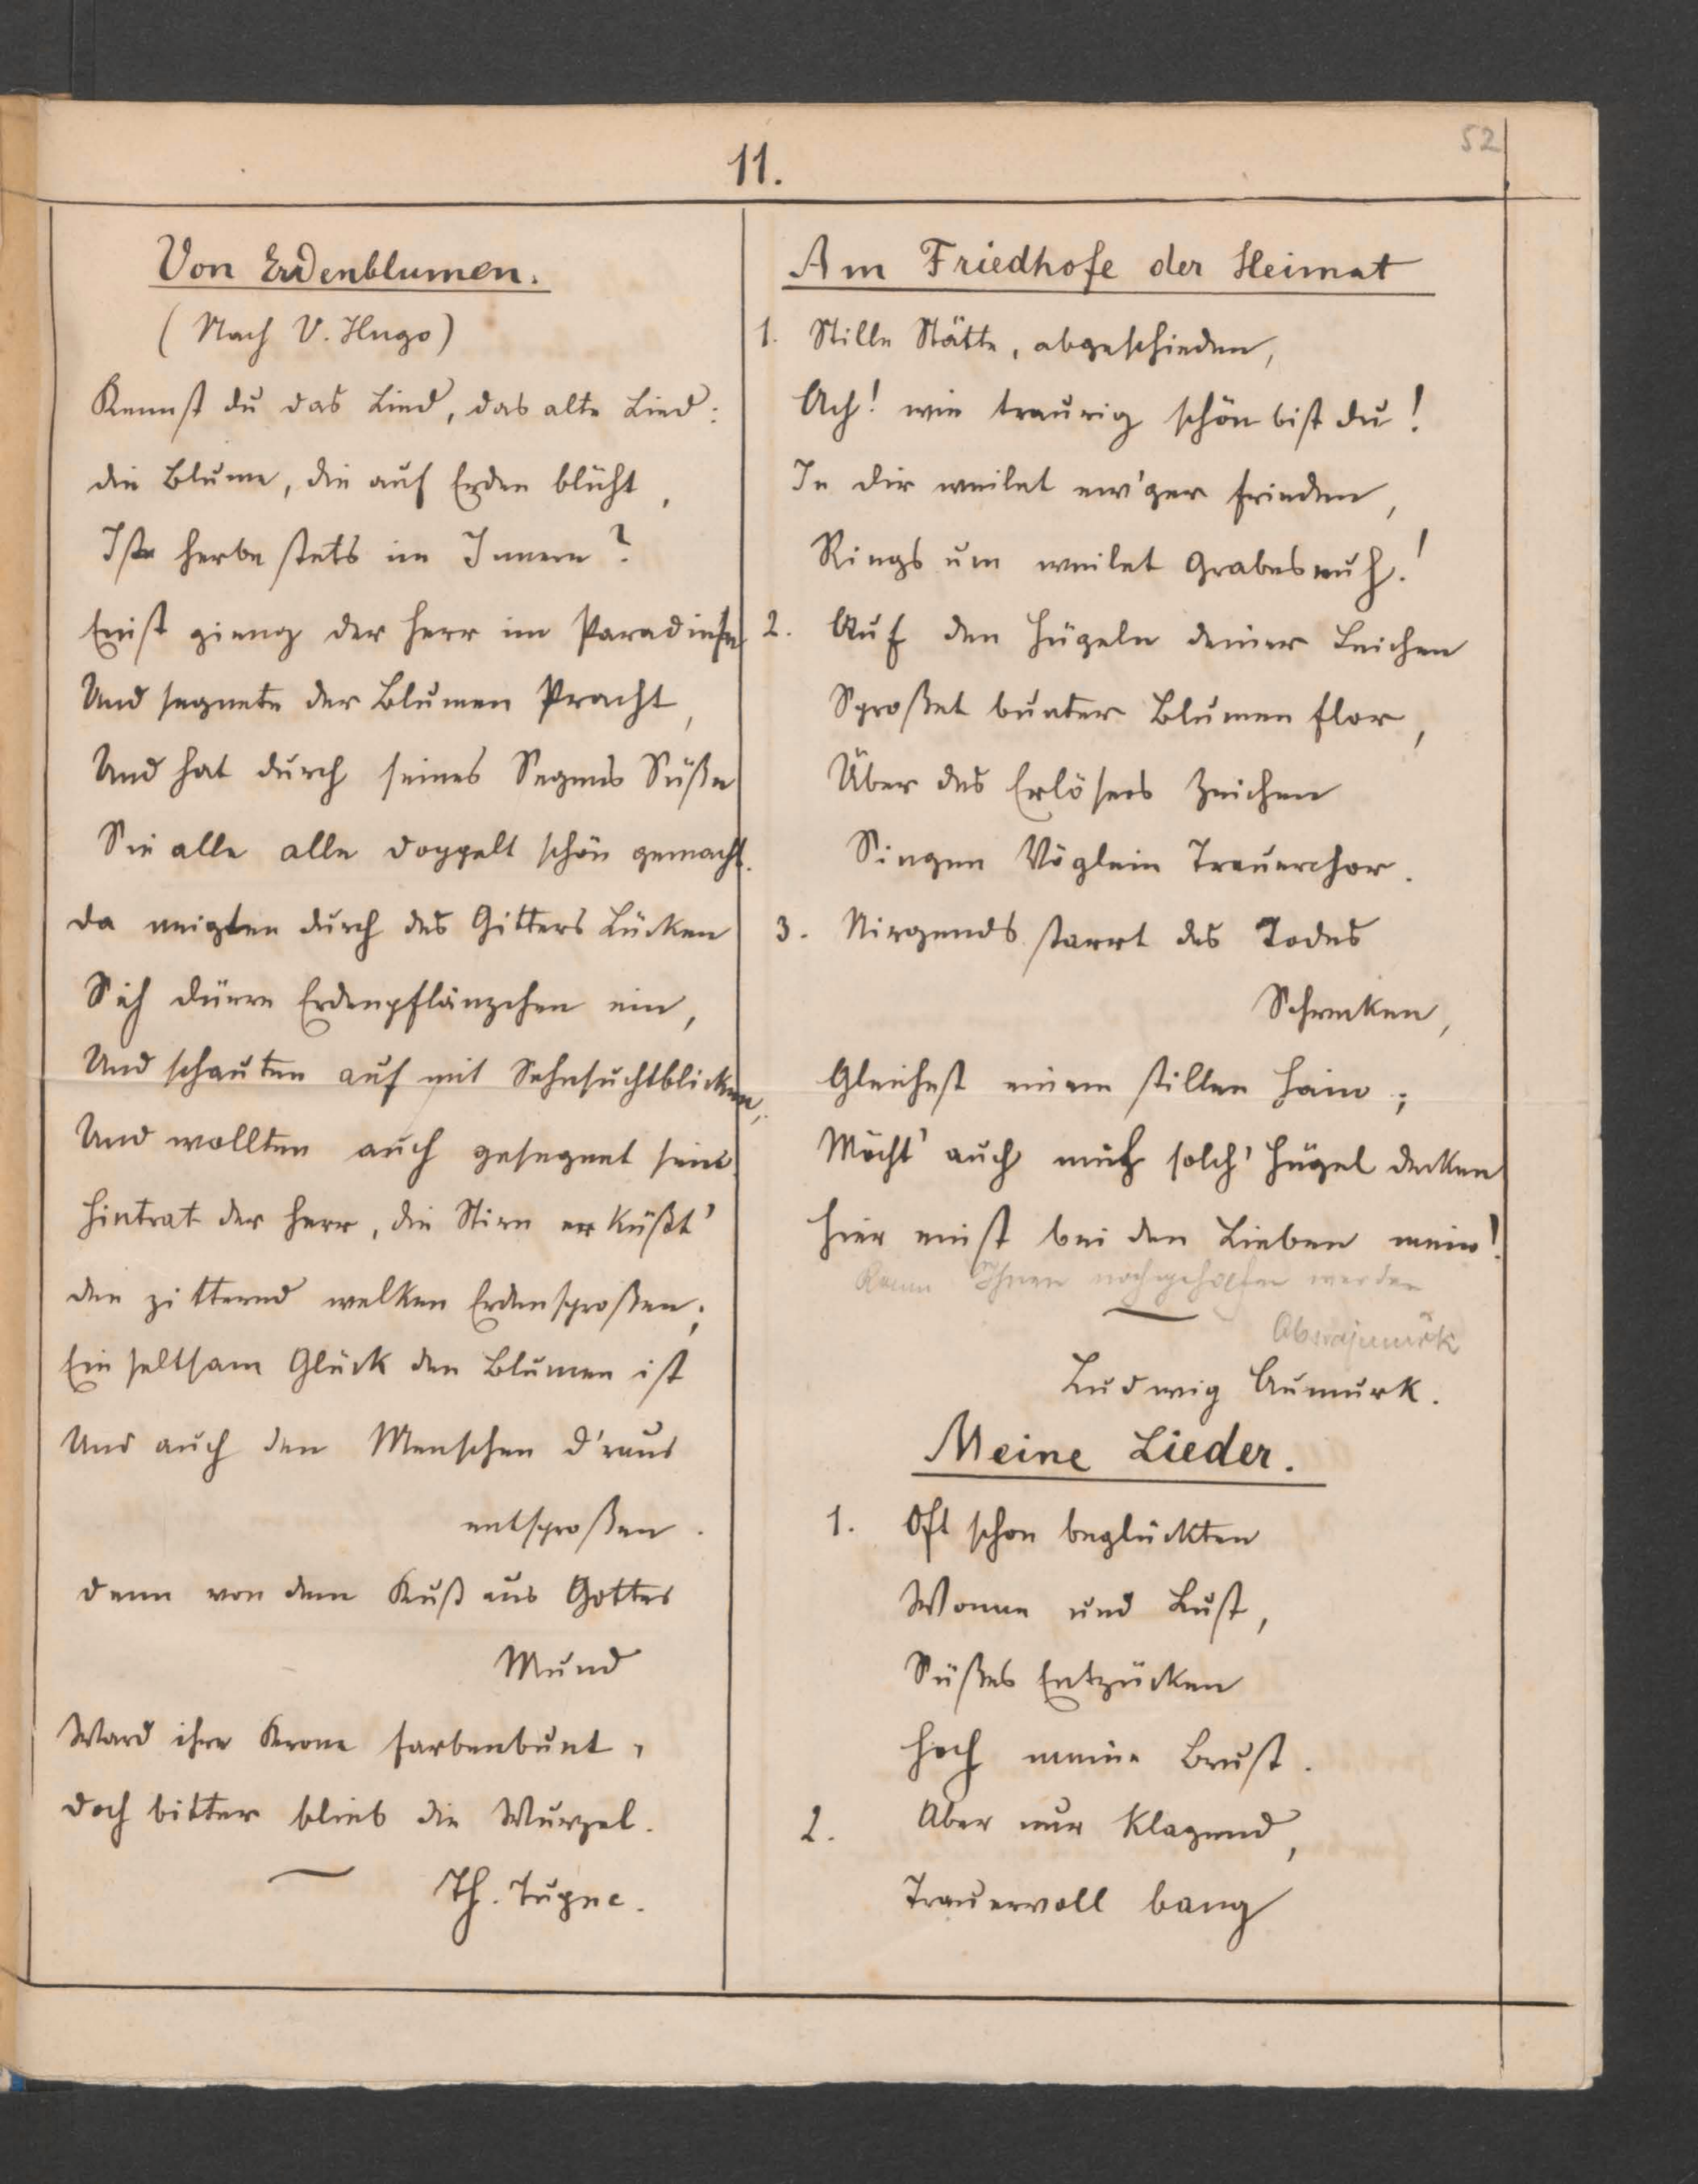 52
11.
Von Erdenblumen.
(Nach V. Hugo)
Kennst du das Lied, das alte Lied:
die Blume, die auf Erden blüht,
Ist herbe stets im Innern?
Einst gieng der Herr im Paradiese
Und segnete der Blumen Pracht,
Und hat durch seines Segens Süße
Sie alle alle doppelt schön gemacht.
da neigten durch des Gitters Lücken
Sich dürre Erdenpflänzchen ein,
Und schauten auf mit Sehnsuchtblicken,
Und wollten auch gesegnet sein.
Hintrat der Herr, die Stirn er küßt'
den zitternd welken Erdensproßen;
Ein seltsam Glück den Blumen ist
Und auch den Menschen d'raus
entsproßen.
denn von dem Kuß aus Gottes
Mund
Ward ihre Krone farbenbunt,
doch bitter blieb die Wurzel.
Th.
Am Friedhofe der Heimat
1. Stille Stätte, abgeschieden,
Ach! wie traurig schön bist du!
In dir weilet ew'ger Frieden,
Rings um weilet Grabesruh.!
2. Auf den Hügeln deiner Leichen
Sproßet bunter Blumen Flor,
Über des Erlösers Zeichen
Singen Vöglein Trauerchor.
3. Nirgends starrt des Todes
Schrecken,
Gleichest einem stillen Hain;
Möcht' auch mich solch' Hügel decken
Hier einst bei den Lieben mein!
Kann Ihnen nachgeholfen werden
Ludwig Aumurk.
Meine Lieder.
1. Oft schon beglückten
Wonne und Lust,
Süßes Entzücken
Hoch meine Brust.
2. Aber nur klagend,
Trauervoll bang